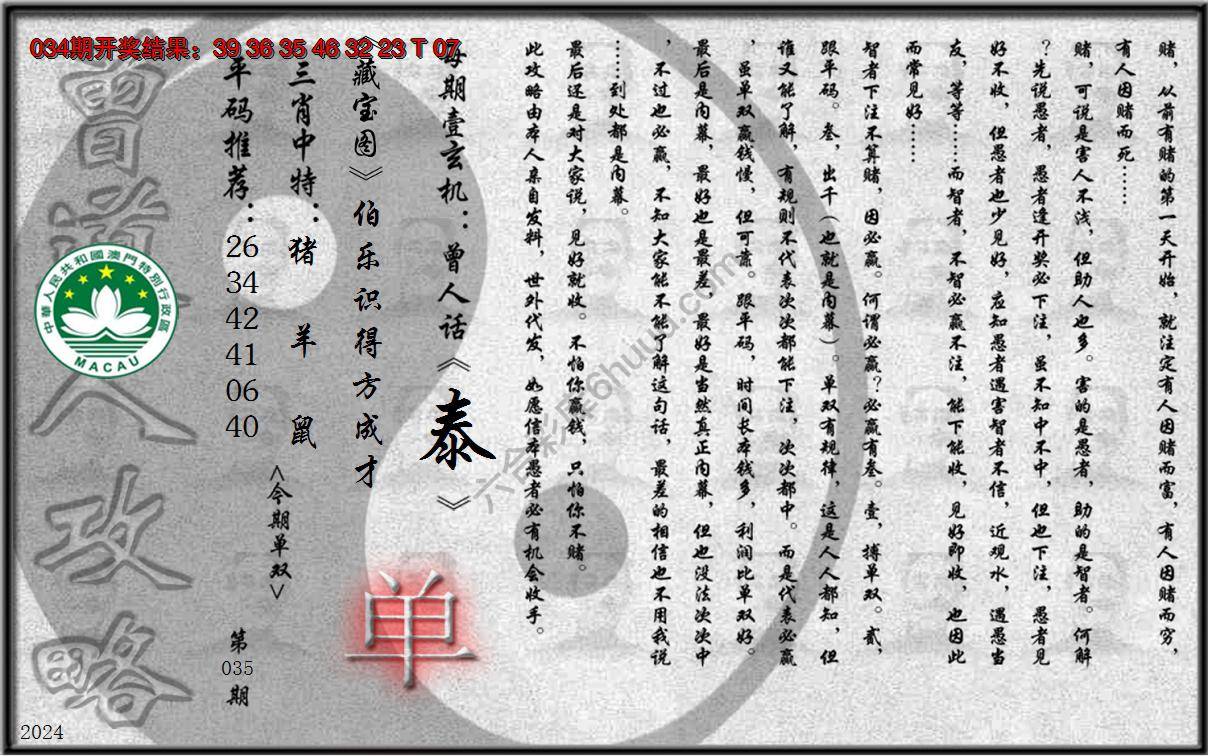 034期开奖结果：39 36 35 46 32 23 T 07
赌，从前有赌的第一天开始，就注定有人因赌而富，有人因赌而穷，
有人因赌而死……
赌，可说是害人不浅，但助人也多。害的是愚者，助的是智者。何解
？先说愚者，愚者逢开奖必下注，虽不知中不中，但也下注，愚者见
好不收，但愚者也少见好，应知愚者遇害智者不信，近观水，遇愚当
友，等等……而智者，不智必赢不注，能下能收，见好即收，也因此
而常见好……
智者下注不算赌，因必赢。何谓必赢？必赢有叁。壹，搏单双。贰，
跟平码。叁，出千（也就是内幕）。单双有规律，这是人人都知，但
谁又能了解，有规则不代表次次都能下注，次次都中。而是代表必赢
，虽单双赢钱慢，但可靠。跟平码，时间长本钱多，利润比单双好。
最后是内幕，最好也是最差，最好是当然真正内幕，但也没法次次中
，不过也必赢，不知大家能不能了解这句话，最差的相信也不用我说
……到处都是内幕。
最后还是对大家说，见好就收。不怕你赢钱，只怕你不赌。
此攻略由本人亲自发料，世外代发，如愿信本愚者必有机会收手。
每期壹玄机：曾人话《泰》
《藏宝图》伯乐识得方成才
单
三肖中特：猪 羊 鼠
<今期单双>
平码推荐：
26
34
42
41
06
40
第
035
期
曾道人攻略
中華人民共和國澳門特別行政區
MACAU
2024
六合彩库6huuu.com